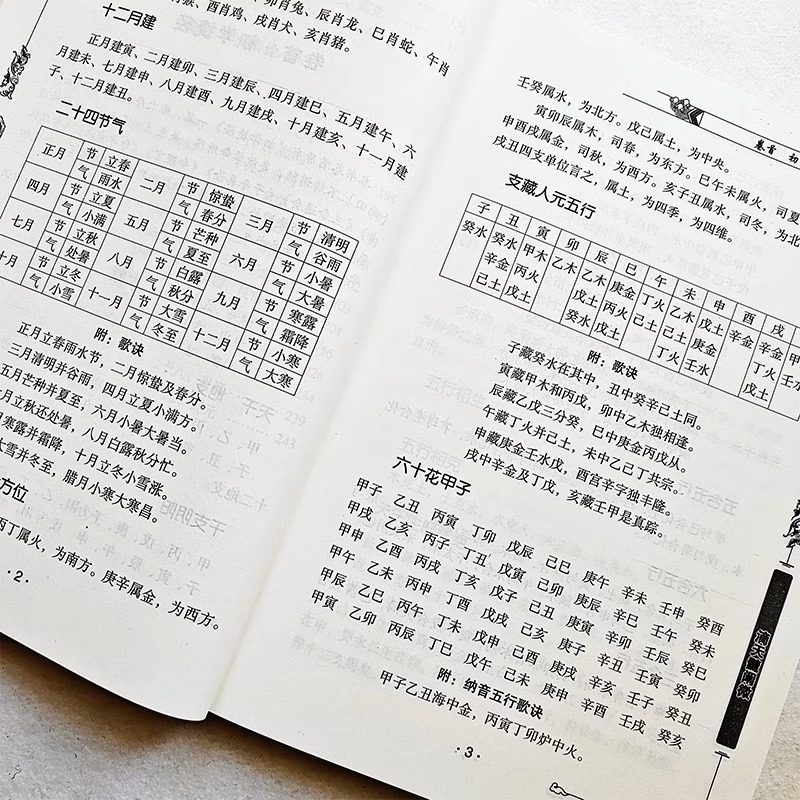 卯肖兔、辰肖龙、巳肖蛇、午肖
酉肖鸡、戌肖犬、亥肖猪。
十二月建
正月建寅、二月建卯、三月建辰、四月建巳、五月建午、六
月建未、七月建申、八月建酉、九月建戌、十月建亥、十一月建
子、十二月建丑。
二十四节气
正月 节 立春 二月 节 惊蛰 三月 节 清明
气 雨水 气 春分 气 谷雨
四月 节 立夏 五月 节 芒种 六月 节 小暑
气 小满 气 夏至 气 大暑
七月 节 立秋 八月 节 白露 九月 节 寒露
气 处暑 气 秋分 气 霜降
十月 节 立冬 十一月 节 大雪 十二月 节 小寒
气 小雪 气 冬至 气 大寒
附：歌诀
正月立春雨水节，二月惊蛰及春分。
三月清明并谷雨，四月立夏小满方。
五月芒种并夏至，六月小暑大暑当。
月立秋还处暑，八月白露秋分忙。
寒露并霜降，十月立冬小雪涨。
大雪并冬至，腊月小寒大寒昌。
方位
丙丁属火，为南方。庚辛属金，为西方。
·2·
卷首 初
壬癸属水，为北方。戊己属土，为中央。
寅卯辰属木，司春，为东方。巳午未属火，司夏
申酉戌属金，司秋，为西方。亥子丑属水，司冬，为北
戌丑四支单位言之，属土，为四季，为四维。
支藏人元五行
子 丑 寅 卯 辰 巳 午 未 申 酉 戌
癸水 癸水 甲木 乙木 乙木 庚金 丁火 乙木 戊土 辛金 辛金 甲木
辛金 丙火 戊土 丙火 己土 己土 庚金 丁火 壬水
己土 戊土 癸水 戊土 丁火 壬水 戊土
附：歌诀
子藏癸水在其中，丑中癸辛己土同。
寅藏甲木和丙戊，卯中乙木独相逢。
辰藏乙戊三分癸，巳中庚金丙戊从。
午藏丁火并己土，未中乙己丁共宗。
申藏庚金壬水戊，酉宫辛字独丰隆。
戌中辛金及丁戊，亥藏壬甲是真踪。
六十花甲子
甲子 乙丑 丙寅 丁卯 戊辰 己巳 庚午 辛未 壬申 癸酉
甲戌 乙亥 丙子 丁丑 戊寅 己卯 庚辰 辛巳 壬午 癸未
甲申 乙酉 丙戌 丁亥 戊子 己丑 庚寅 辛卯 壬辰 癸巳
甲午 乙未 丙申 丁酉 戊戌 己亥 庚子 辛丑 壬寅 癸卯
甲辰 乙巳 丙午 丁未 戊申 己酉 庚戌 辛亥 壬子 癸丑
甲寅 乙卯 丙辰 丁巳 戊午 己未 庚申 辛酉 壬戌 癸亥
附：纳音五行歌诀
甲子乙丑海中金，丙寅丁卯炉中火。
·3·